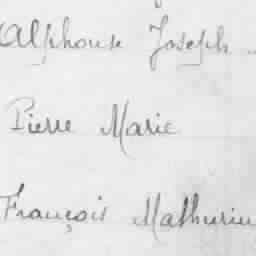 Alphonse Joseph
Pierre Marie
François Mathurin